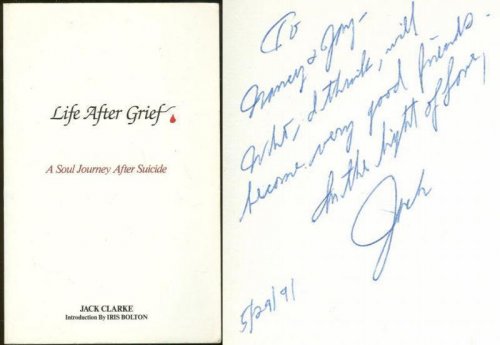 Life After Grief
A Soul Journey After Suicide
JACK CLARKE
Introduction By IRIS BOLTON
To
Nancy & Joy-
Who, I think, will
become very good friends.
In the light of love,
Jack
5/29/91